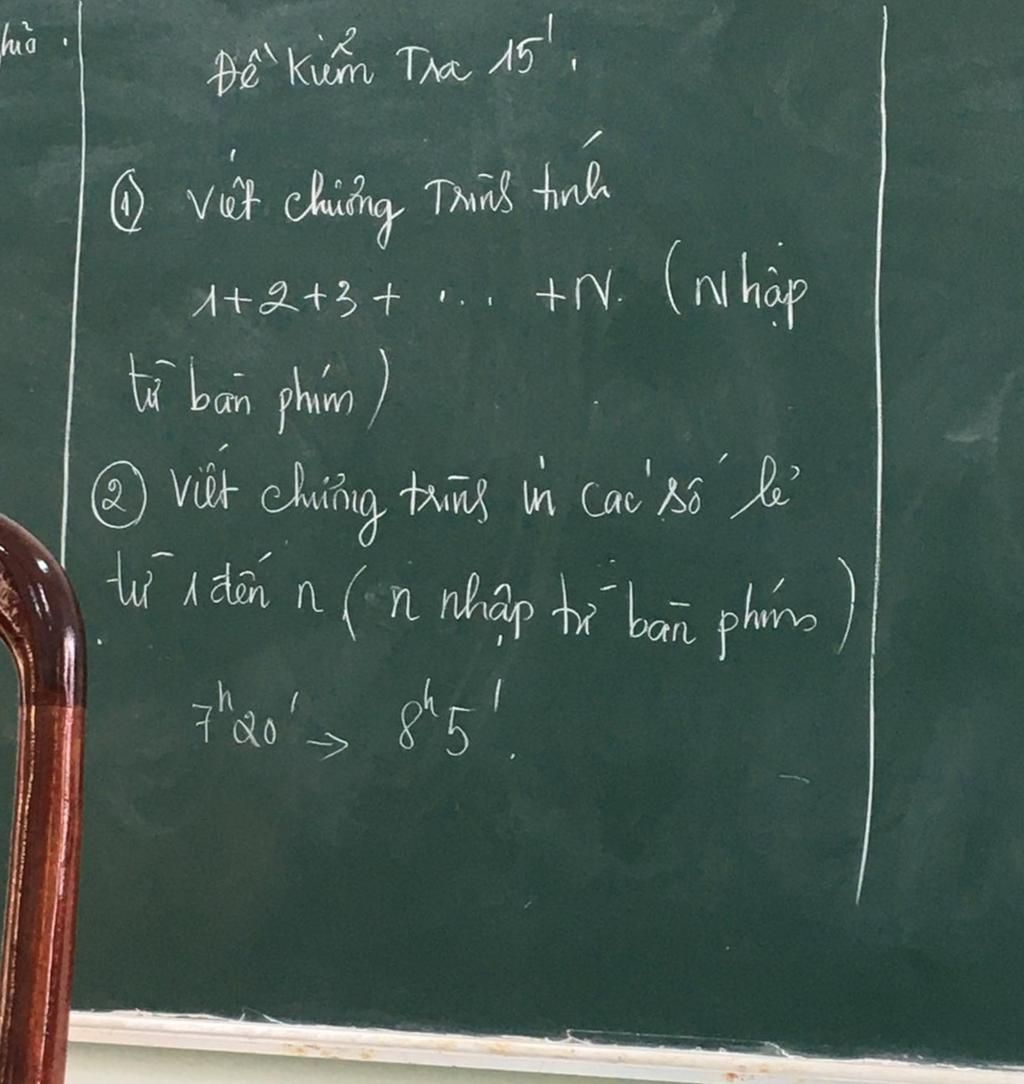 Đề Kiểm Tra 15'.
① Viết chương Trình tính
1+2+3+ ... +N. (Nhập
từ bàn phím)
② Viết chương trình in các số lẻ
từ 1 đến n ( n nhập từ bàn phím)
7h20' → 8h5'.